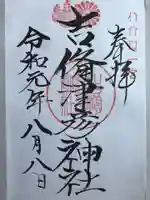 奉拝
吉備津彦神社
令和元年八月八日